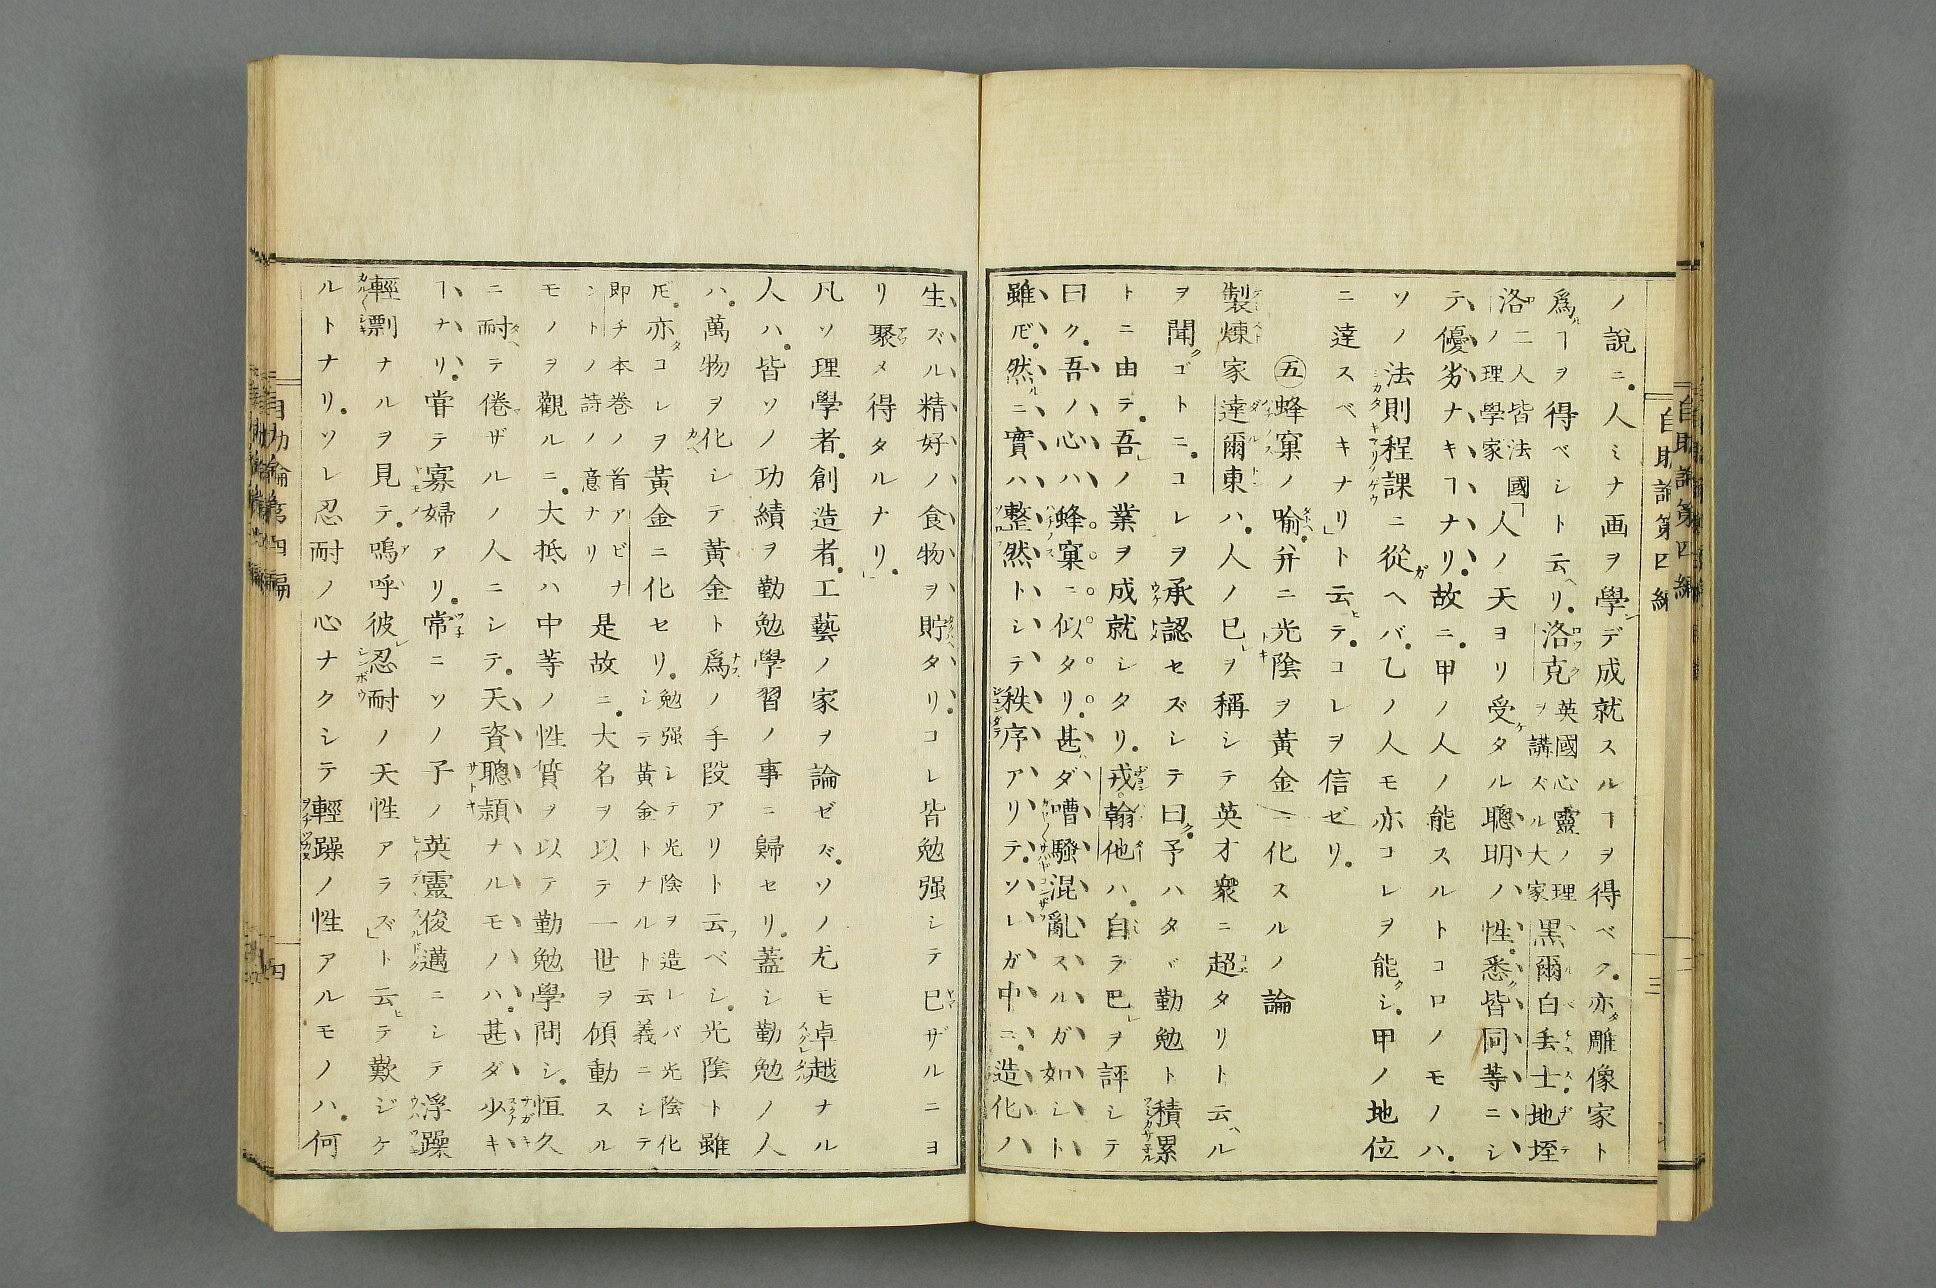 ノ說ニ。人ミナ画ヲ學ンデ成就スルヿヲ得ベク。亦タ雕像家ト
爲ルヿヲ得ベシト云ヘリ。洛克英國心靈ノ理ヲ講ズル大家黒爾白丢士地垤
洛二人皆法國ノ理學家人ノ天ヨリ受ケタル聰明ノ性。悉ク皆同等ニシ
テ優劣ナキヿナリ。故ニ。甲ノ人ノ能スルトコロノモノハ。
ソノ法則程課ニ從ヘバ。乙ノ人モ亦コレヲ能クシ。甲ノ地位
ニ達スベキナリ」ト云ヒテ。コレヲ信ゼリ。
㊄蜂窠ノ喩。幷ニ光陰ヲ黃金ニ化スルノ論
製煉家達爾東ハ。人ノ己レヲ稱シテ英才衆ニ超エタリト云ヘル
ヲ聞クゴトニ。コレヲ承認セズシテ曰ク。予ハタヾ勤勉ト積累
トニ由テ。吾レノ業ヲ成就シタリ。戎翰他ハ。自ラ己レヲ評シテ
曰ク。吾ノ心ハ蜂窠ニ似タリ。甚ダ嘈騷混亂スルガ如シト
雖𪜈。然ルニ實ハ整然トシテ秩序アリテ。ソレガ中ニ。造化ノ
生ズル精好ノ食物ヲ貯ヘタリ。コレ皆勉强シテ已ザルニヨ
リ聚メ得タルナリ。」
凡ソ理學者。創造者。工藝ノ家ヲ論ゼズ。ソノ尤モ卓越ナル
人ハ。皆ソノ功績ヲ勤勉學習ノ事ニ歸セリ。蓋シ勤勉ノ人
ハ。萬物ヲ化シテ黃金ト爲ノ手段アリト云フベシ。光陰ト雖
𪜈。亦タコレヲ黃金ニ化セリ。勉强シテ光陰ヲ造レバ光陰化シテ黃金トナルト云義ニシテ
即チ本巻ノ首アビナントノ詩ノ意ナリ是故ニ。大名ヲ以テ一世ヲ傾動スル
モノヲ觀ルニ。大抵ハ中等ノ性質ヲ以テ勤勉學問シ。恒久
ニ耐ヘテ倦ザルノ人ニシテ。天資聰頴ナルモノハ。甚ダ少キ
ヿナリ。甞テ寡婦アリ。常ニソノ子ノ英靈俊邁ニシテ浮躁
輕剽ナルヲ見テ。嗚呼彼レ忍耐ノ天性アラズ」ト云ヒテ歎ジケ
ルトナリ。ソレ忍耐ノ心ナクシテ輕躁ノ性アルモノハ。何
自助論第四編
三
自助論第四編
四